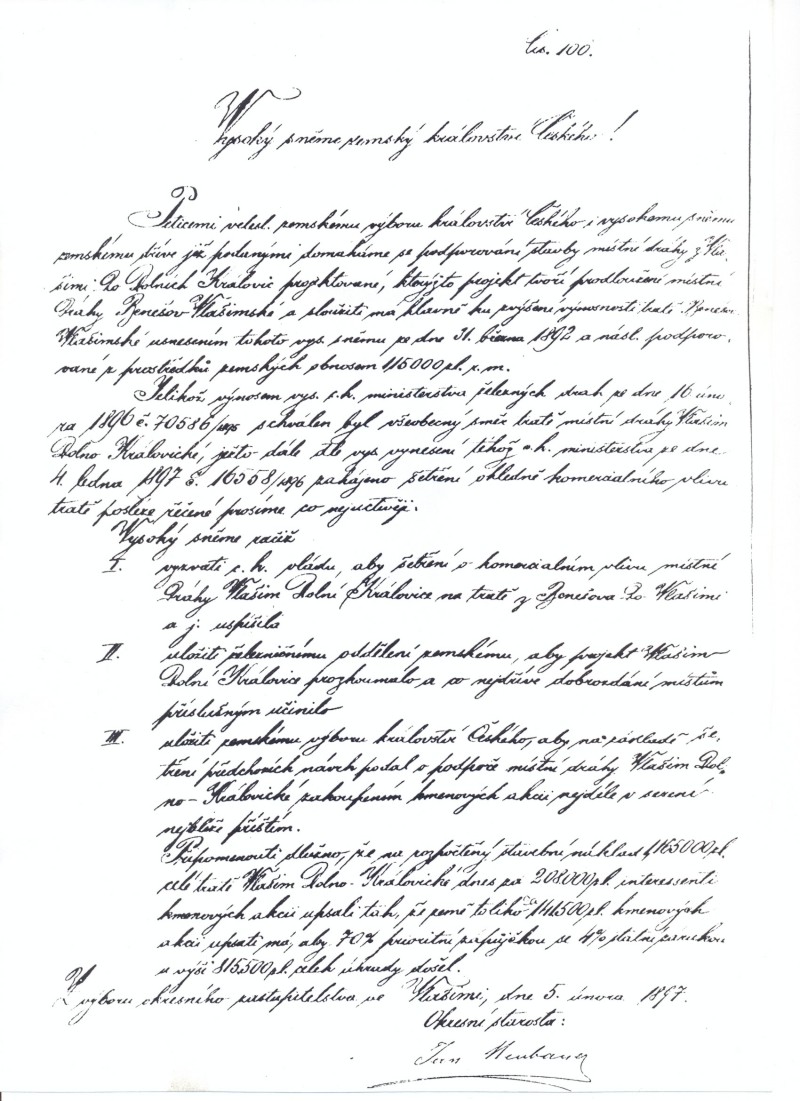 čís. 100.
Vysoký sněme zemský království Českého!
Peticemi velesl. zemskému výboru království Českého i vysokému sněmu
zemskému dříve již podanými domáháme se podporování stavby místné dráhy z Vla-
šimi do Dolních Královic projektované, kterýžto projekt tvoří prodloužení místní
dráhy Benešov-Vlašimské a sloužiti má hlavně ku zvýšení výnosnosti tratě Benešov
Vlašimské usnesením tohoto vys. sněmu ze dne 31. března 1892 a násl. podporo-
vané z prostředků zemských obnosem 115000 zl. r. m.
Jelikož výnosem vys. c. k. ministerstva železných drah ze dne 16 úno-
ra 1896 č. 70586/1895 schválen byl všeobecný směr tratě místní dráhy Vlašim
Dolno Královické, ježto dále dle vys. vynesení téhož c. k. ministerstva ze dne
4. ledna 1897 č. 16558/1896 zahájeno šetření ohledně komerciálního vlivu
tratě posléze řečené prosíme co nejuctivěji:
Vysoký sněme račiž
I. vyzvati c. k. vládu, aby šetření o komerciálním vlivu místné
dráhy Vlašim Dolní Královice na trati z Benešova do Vlašimi
a j. uspíšila
II. uložiti železničnímu oddělení zemskému, aby projekt Vlašim-
Dolní Královice prozkoumalo a co nejdříve dobrozdání místům
příslušným učinilo
III. uložiti zemskému výboru království Českého, aby na základě še-
tření předchozích návrh podal o podpoře místní dráhy Vlašim Dol-
no-Královické zakoupením kmenových akcií nejdéle v sezení
nejblíže příštím.
Připomenouti dlužno, že na rozpočtený stavební náklad 1,165000 zl.
celé tratě Vlašim Dolno-Královické dnes za 208000 zl. interessenti
kmenových akcií upsali tak, že země toliko za 141.500 zl. kmenových
akcií upsati má, aby 70% prioritní zápůjčkou se 4% státní zárukou
u výši 815.500 zl. celek úhrady došel.
Z výboru okresního zastupitelstva ve Vlašimi, dne 5. února 1897.
Okresní starosta:
Jan Neubauer